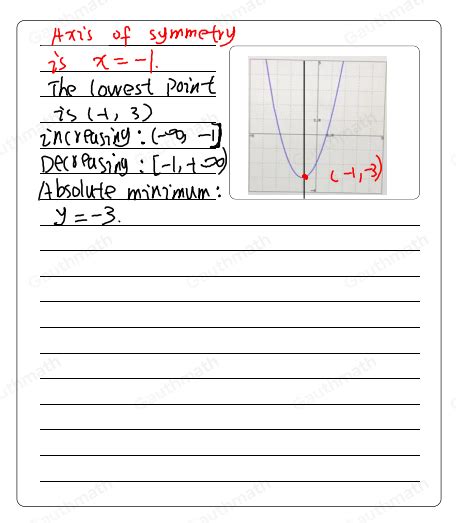 Axis of symmetry
is x=-1.
The lowest point
is (-1, 3)
increasing: (-∞, -1]
Decreasing: [-1, +∞)
Absolute minimum:
y=-3.
(-1,-3)